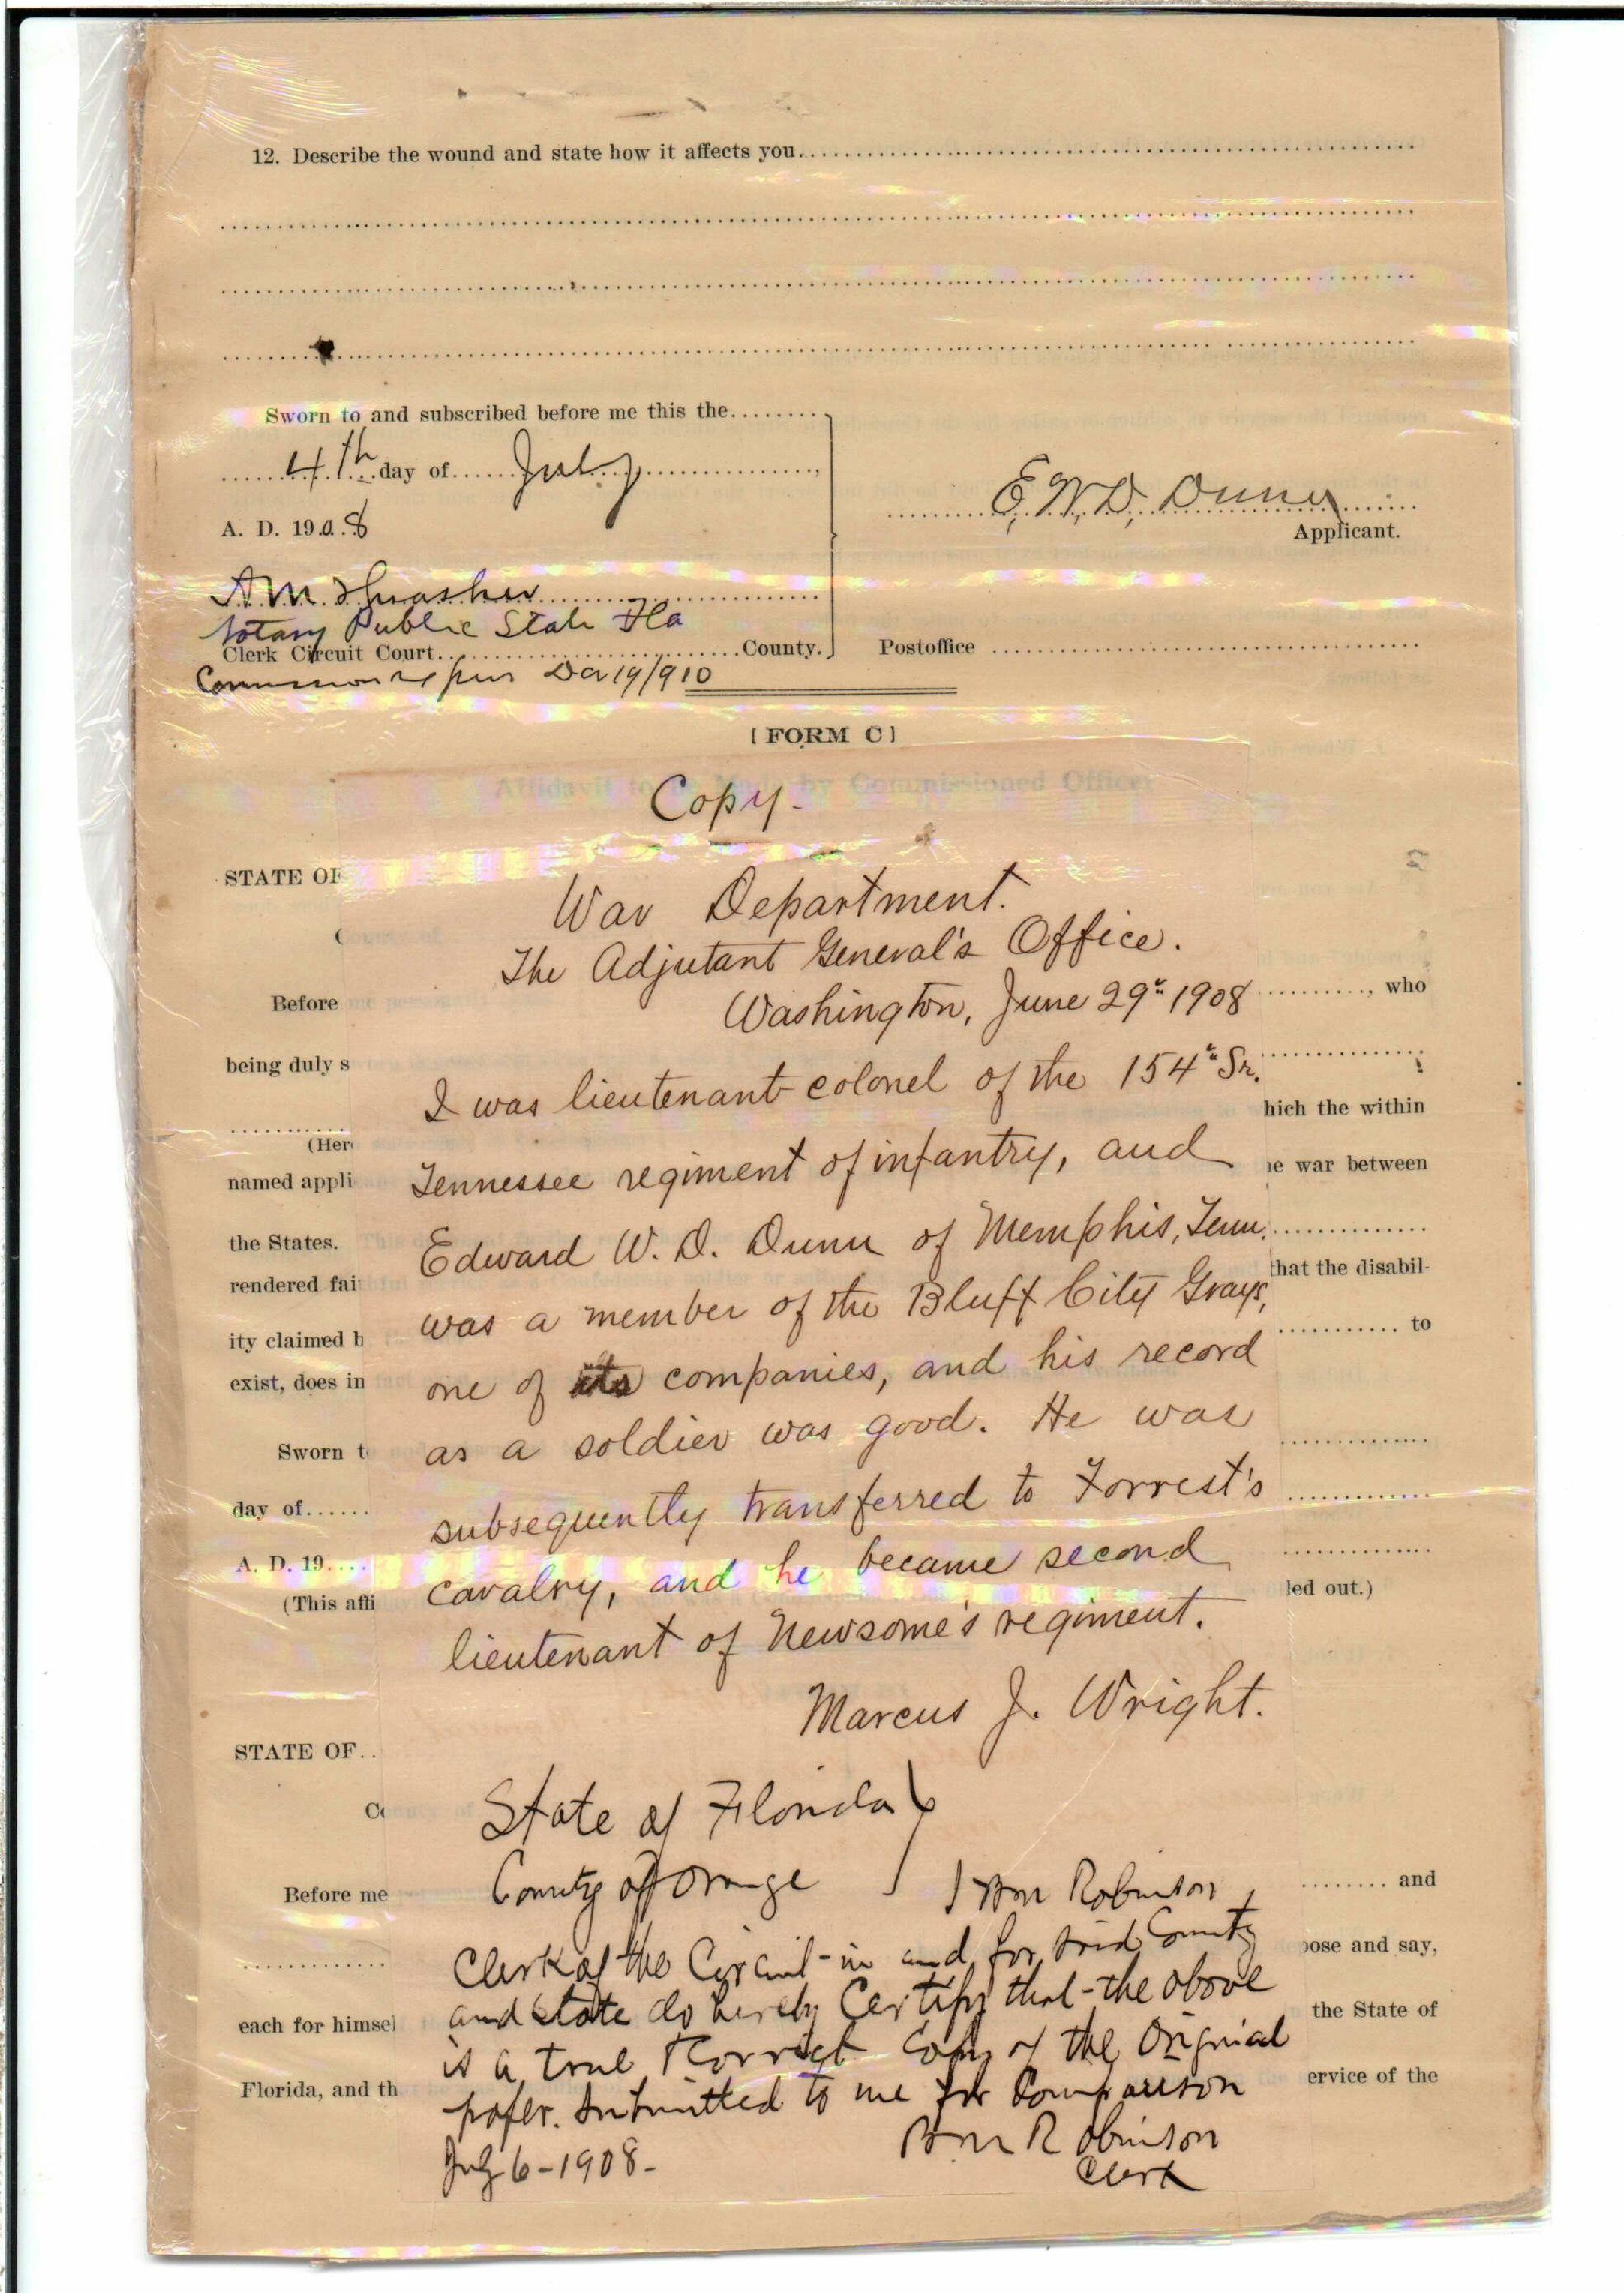 12. Describe the wound and state how it affects you
Sworn to and subscribed before me this the
4th day of July
A. D. 1908
E. W. D. Dunn
Applicant.
A M
Notary Public State Fla
Clerk Circuit Court County.
Postoffice
Commission 19/910
[FORM C]
Affidavit to be Made by Commissioned Officer
Copy.
STATE OF
War Department.
County of
The Adjutant General's Office.
Before , who
Washington, June 29" 1908
being duly s
I was lieutenant colonel of the 154" Sr.
hich the within
(Her
Tennessee regiment of infantry, and
named appli e war between
Edward W. D. Dunn of Memphis, Tenn.
the States.
rendered fai that the disabil-
was a member of the Bluff City Grays,
ity claimed b to
one of its companies, and his record
exist, does in
as a soldier was good. He was
Sworn t
subsequently transferred to Forrest's
day of
cavalry, and he became second
A. D. 19
(This affi led out.)
lieutenant of Newsome's regiment.
Marcus J. Wright.
STATE OF
State of Florida
Co
County of Orange I B M Robinson
Before me and
Clerk of the Circuit in and for said County
pose and say,
and State do hereby Certify that the above
each for himsel the State of
is a true & Correct Copy of the Original
Florida, and th ervice of the
paper submitted to me for Comparison
B M Robinson
July 6-1908-
Clerk